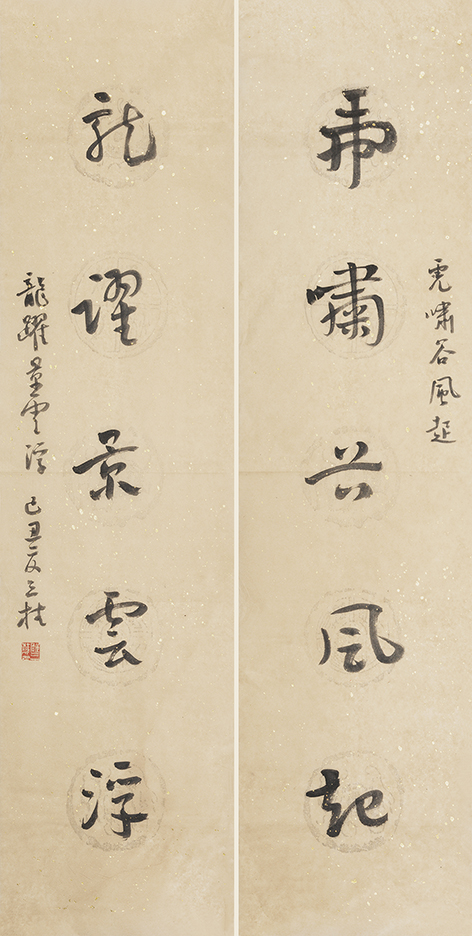 虎嘯谷風起
虎嘯谷風起
龍躍景雲浮
龍躍景雲浮 己丑夏之桂